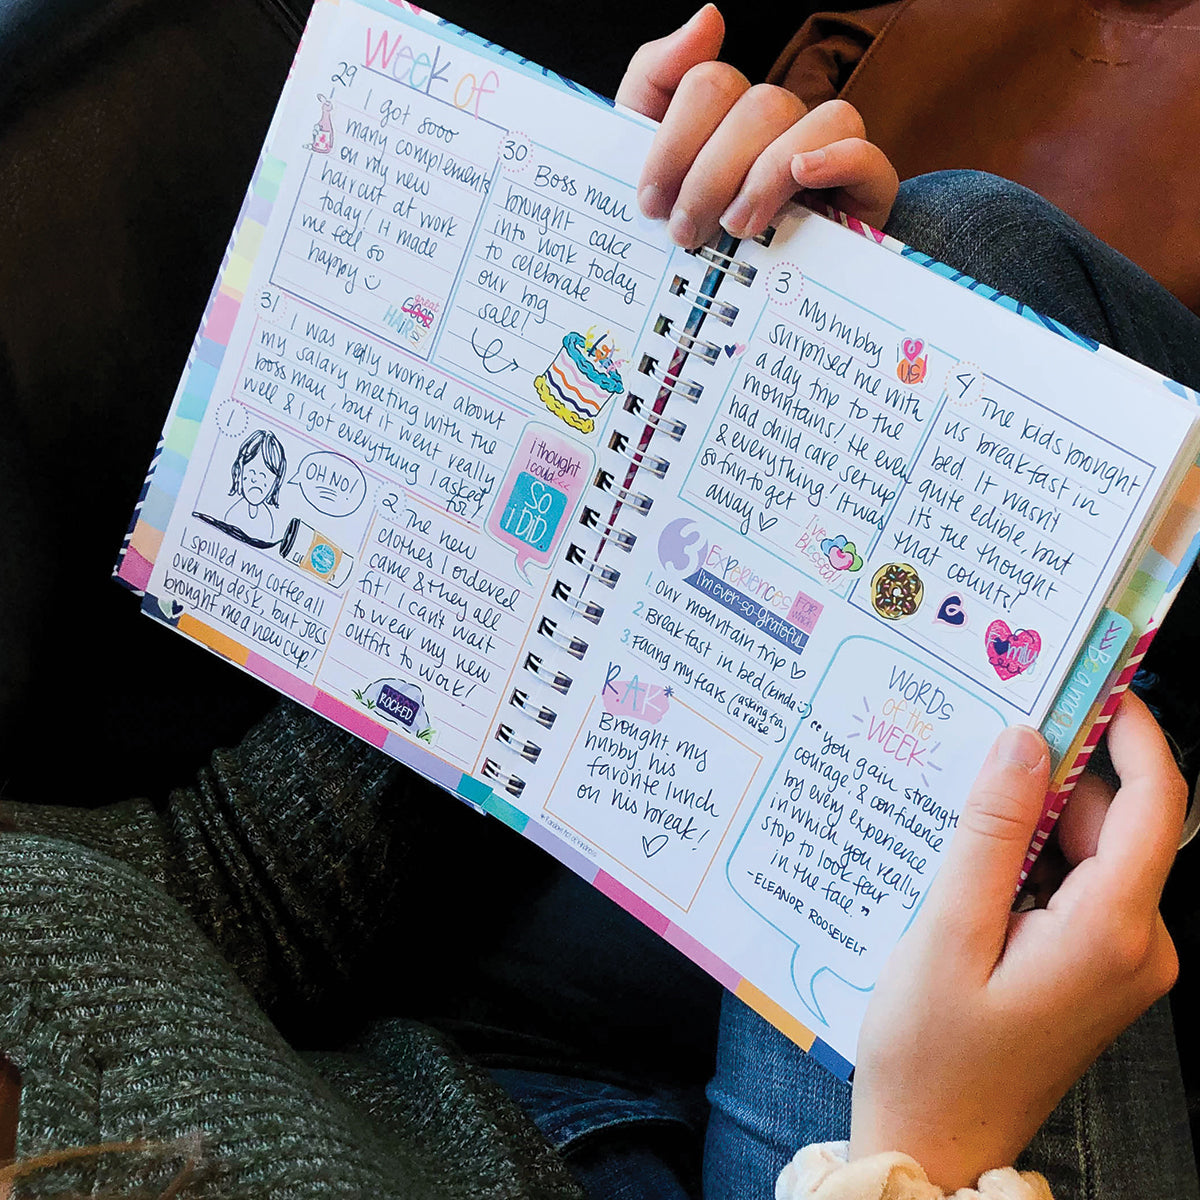 Week of
29
I got sooo
many complements
on my new
haircut at work
today! It made
me feel so
happy
great
GOOD
HAIR
30
Boss man
brought cake
into work today
to celebrate
our big
sale!
31
I was really worried about
my salary meeting with the
boss man, but it went really
well & I got everything I asked
for!
i thought
i could
SO
i DiD.
1
OH NO!
I spilled my coffee all
over my desk, but Jess
brought me a new cup!
2
The new
clothes I ordered
came & they all
fit! I can't wait
to wear my new
outfits to work!
ROCKED
3
My hubby
surprised me with
a day trip to the
mountains! He even
had child care set up
& everything! It was
so fun to get
away
US!
i'm
Blessed!
4
The kids brought
us breakfast in
bed. It wasn't
quite edible, but
it's the thought
that counts!
family
3 EXPERiENCES FOR
which
I'm ever-so-grateful
1. Our mountain trip
2. Breakfast in bed (kinda)
3. Facing my fears (asking for
a raise)
R.A.K*
Brought my
hubby his
favorite lunch
on his break!
*Random Act of Kindness
WORDS
of the
WEEK
"You gain strength
courage, & confidence
by every experience
in which you really
stop to look fear
in the face."
-ELEANOR ROOSEVELT
Be a